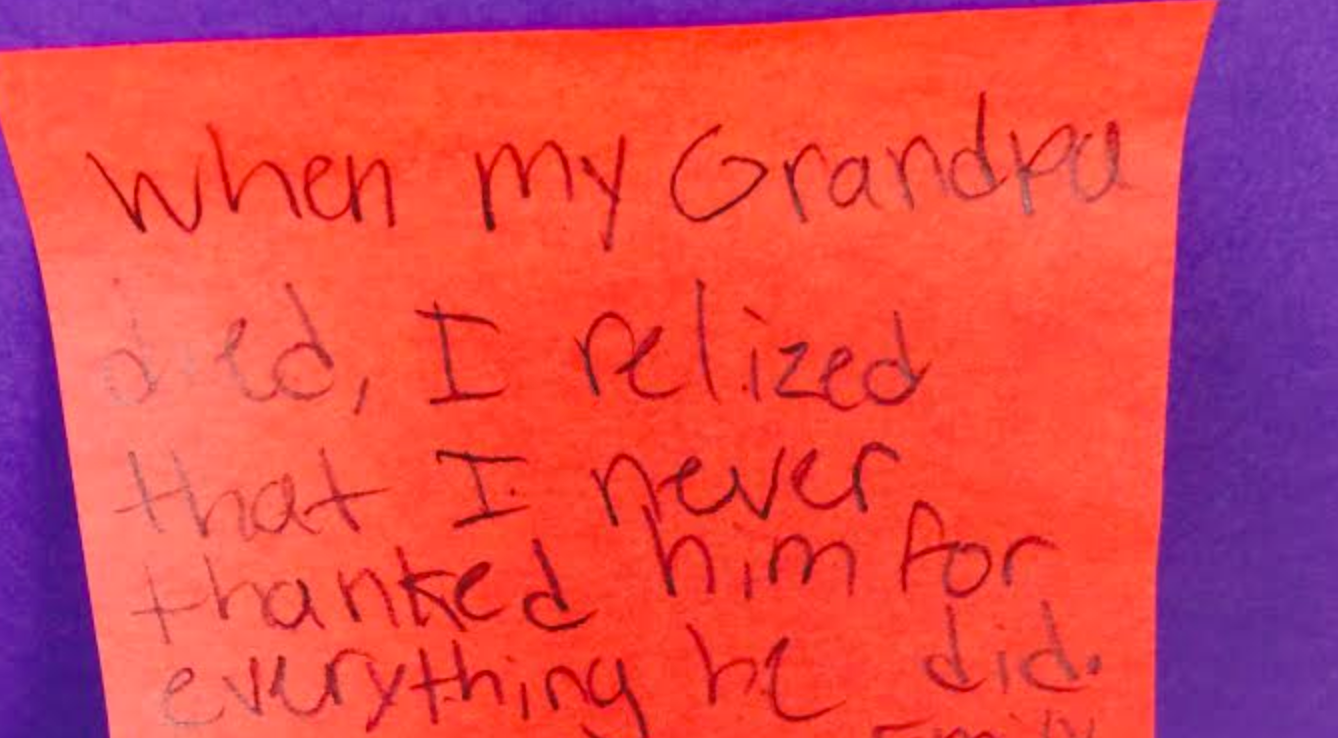 When my Grandpa
died, I relized
that I never
thanked him for
everything he did.